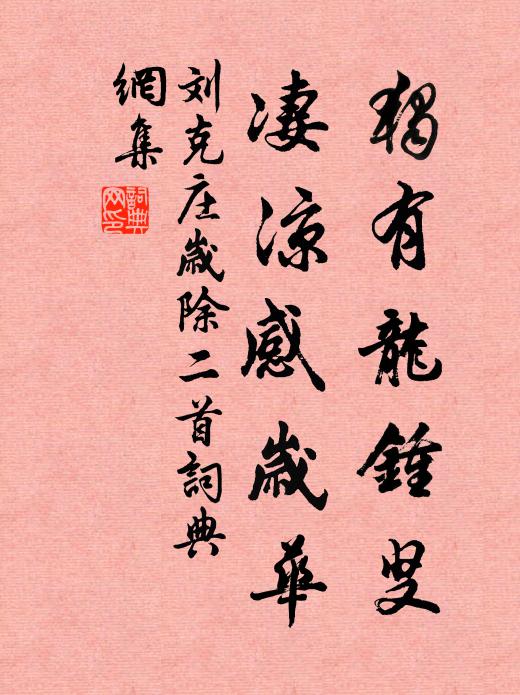 獨有龍鍾叟
凄涼感歲華
刘克庄歲除二首詞典
網集
詞典
网印